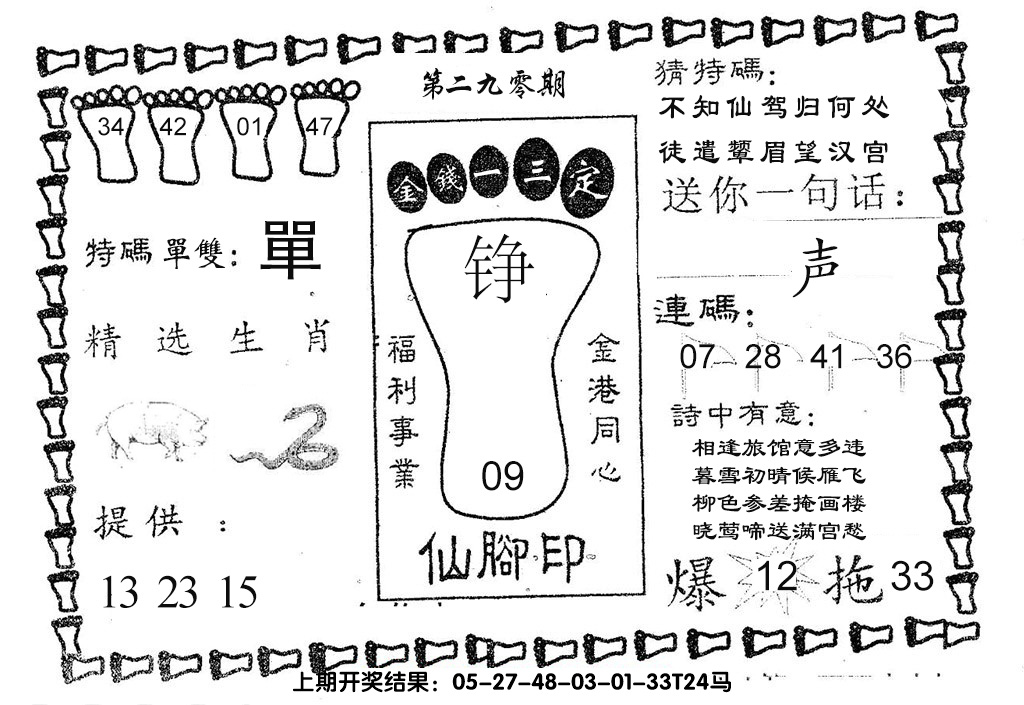 第二九零期
34 42 01 47
特碼單雙：單
精选生肖
提供：
13 23 15
金錢一三定
铮
福利事業
金港同心
09
仙腳印
猜特碼：
不知仙驾归何处
徒遣颦眉望汉宫
送你一句话：
声
連碼：
07 28 41 36
詩中有意：
相逢旅馆意多违
暮雪初晴候雁飞
柳色参差掩画楼
晓莺啼送满宫愁
爆 12 拖 33
上期开奖结果：05-27-48-03-01-33T24马